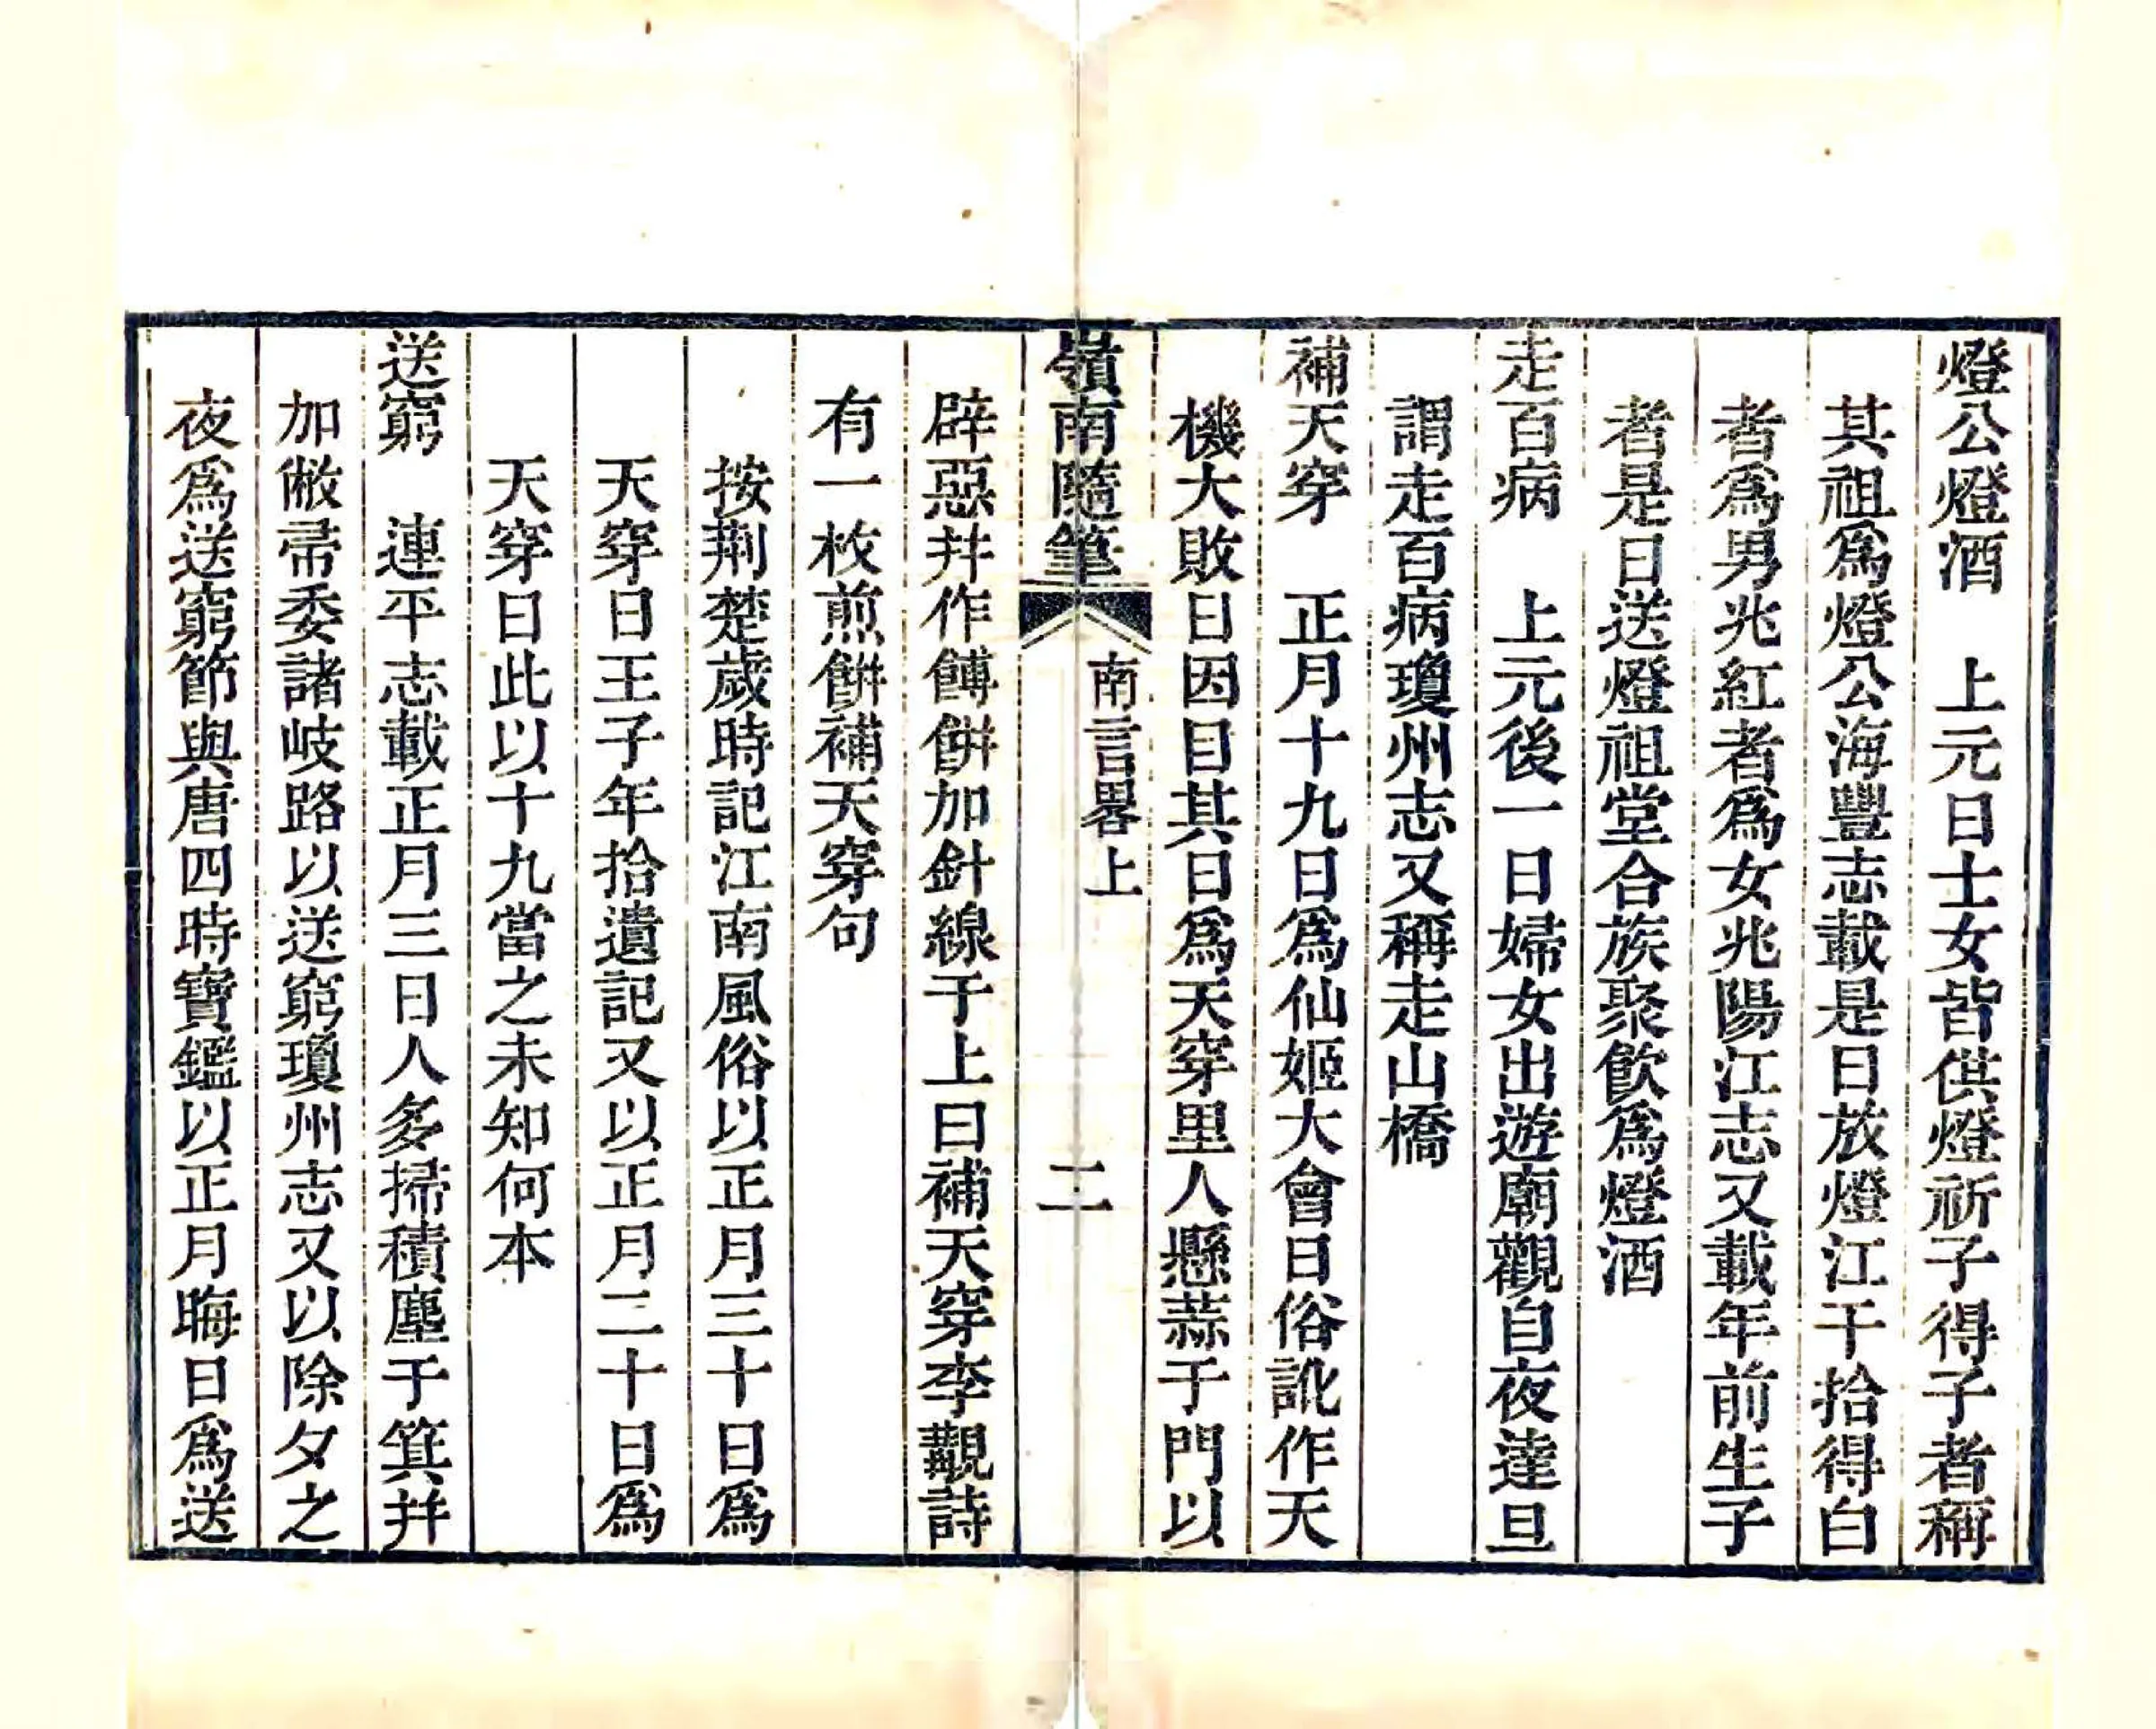 燈公燈酒　上元日士女皆供燈祈子得子者稱
其祖爲燈公海豐志載是日放燈江干拾得白
者爲男兆紅者爲女兆陽江志又載年前生子
者是日送燈祖堂合族聚飮爲燈酒
走百病　上元後一日婦女出遊廟觀自夜達旦
謂走百病瓊州志又稱走山橋
補天穿　正月十九日爲仙姬大會日俗訛作天
機大敗日因目其日爲天穿里人懸蒜于門以
嶺南隨筆
南言畧上
二
辟惡幷作餺餠加針線于上曰補天穿李覯詩
有一枚煎餠補天穿句
按荆楚歲時記江南風俗以正月三十日爲
天穿日王子年拾遺記又以正月二十日爲
天穿日此以十九當之未知何本
送窮　連平志載正月三日人多掃積塵于箕幷
加敝帚委諸岐路以送窮瓊州志又以除夕之
夜爲送窮節與唐四時寶鑑以正月晦日爲送